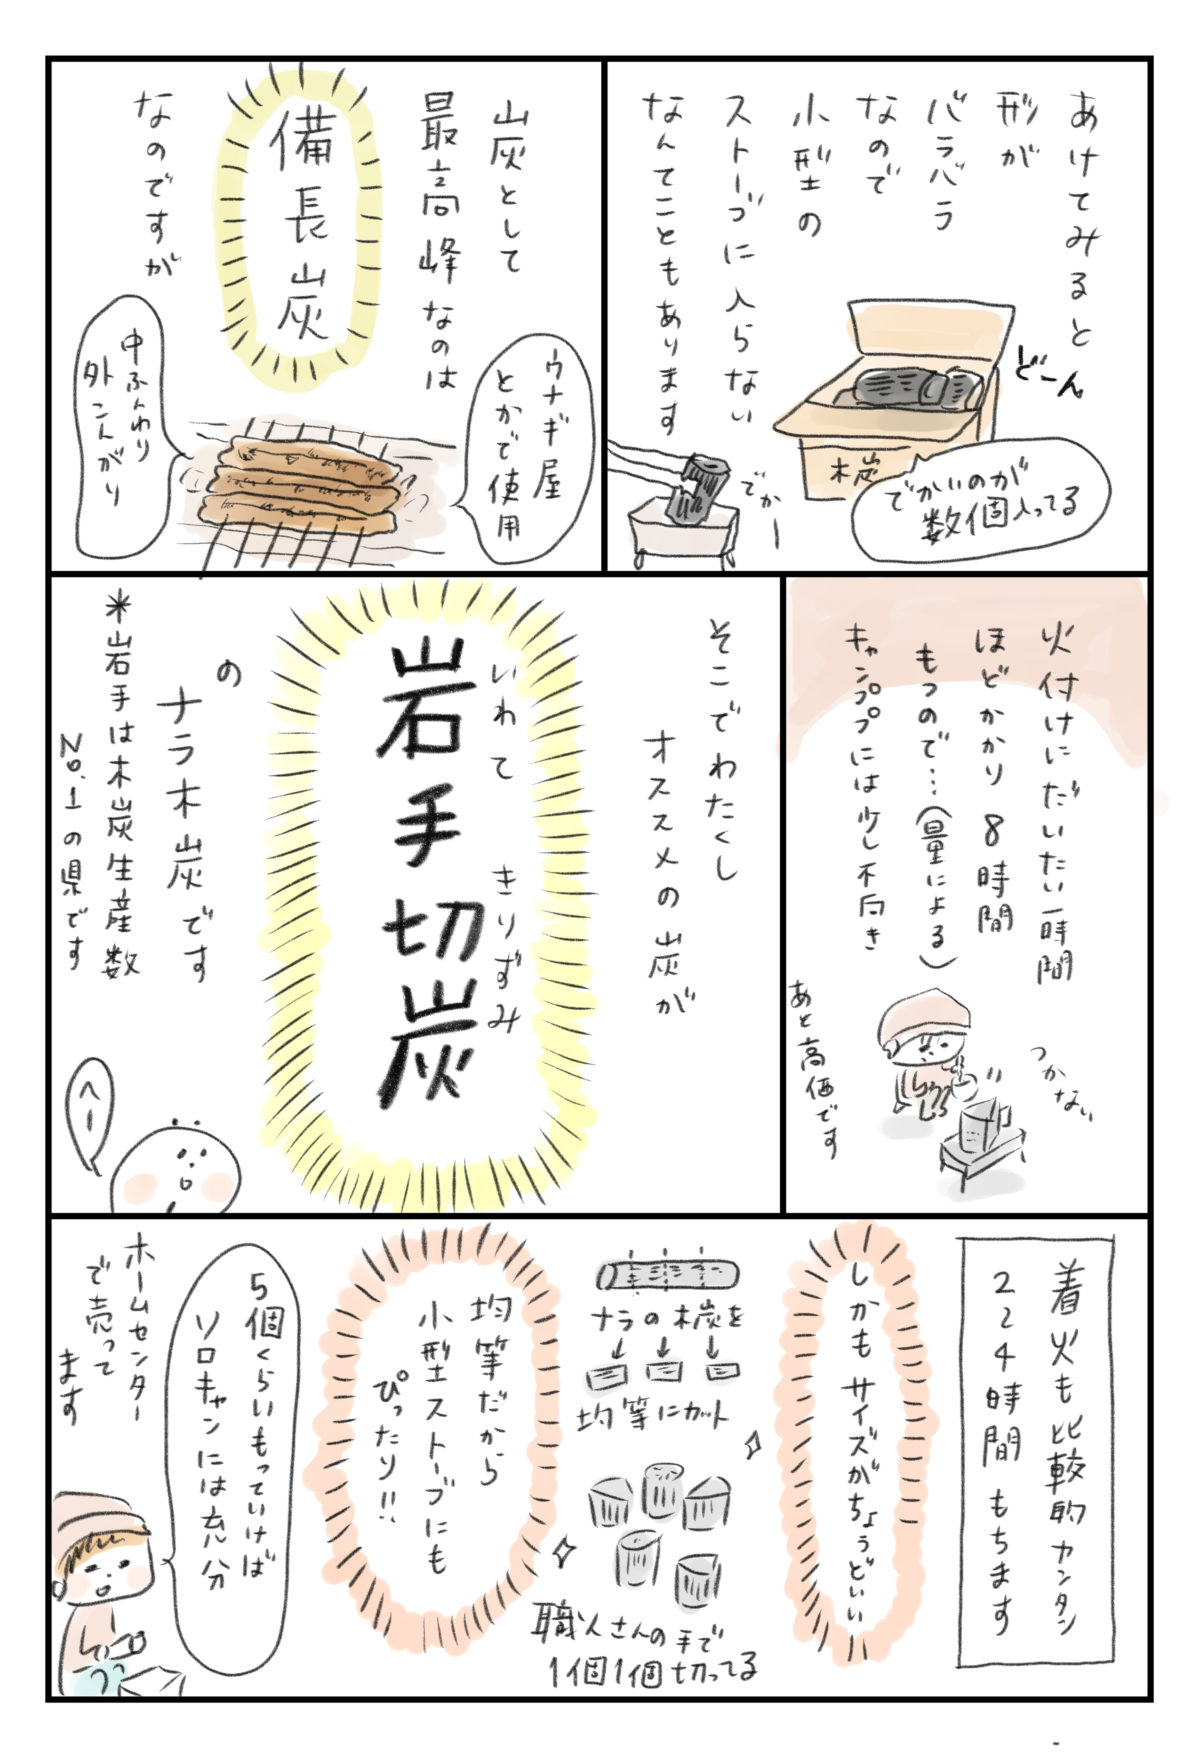 あけてみると
形が
バラバラ
なので
小型の
ストーブに入らない
なんてこともあります
どーん
木炭
でかいのが
数個入ってる
でかー
炭として
最高峰なのは
備長炭
なのですが
ウナギ屋
とかで使用
中ふんわり
外こんがり
火付けにだいたい一時間
ほどかかり 8時間
もつので…(量による)
キャンププには少し不向き
あと高価です
つかない
そこでわたくし
オススメの炭が
いわて きりずみ
岩手切炭
の
ナラ木炭です
*岩手は木炭生産数
No.1の県です
へー
着火も比較的カンタン
2〜4時間もちます
しかもサイズがちょうどいい
ナラの木炭を
均等にカット
職人さんの手で
1個1個切ってる
均等だから
小型ストーブにも
ぴったり!!
5個くらいもっていけば
ソロキャンには充分
ホームセンター
で売って
ます